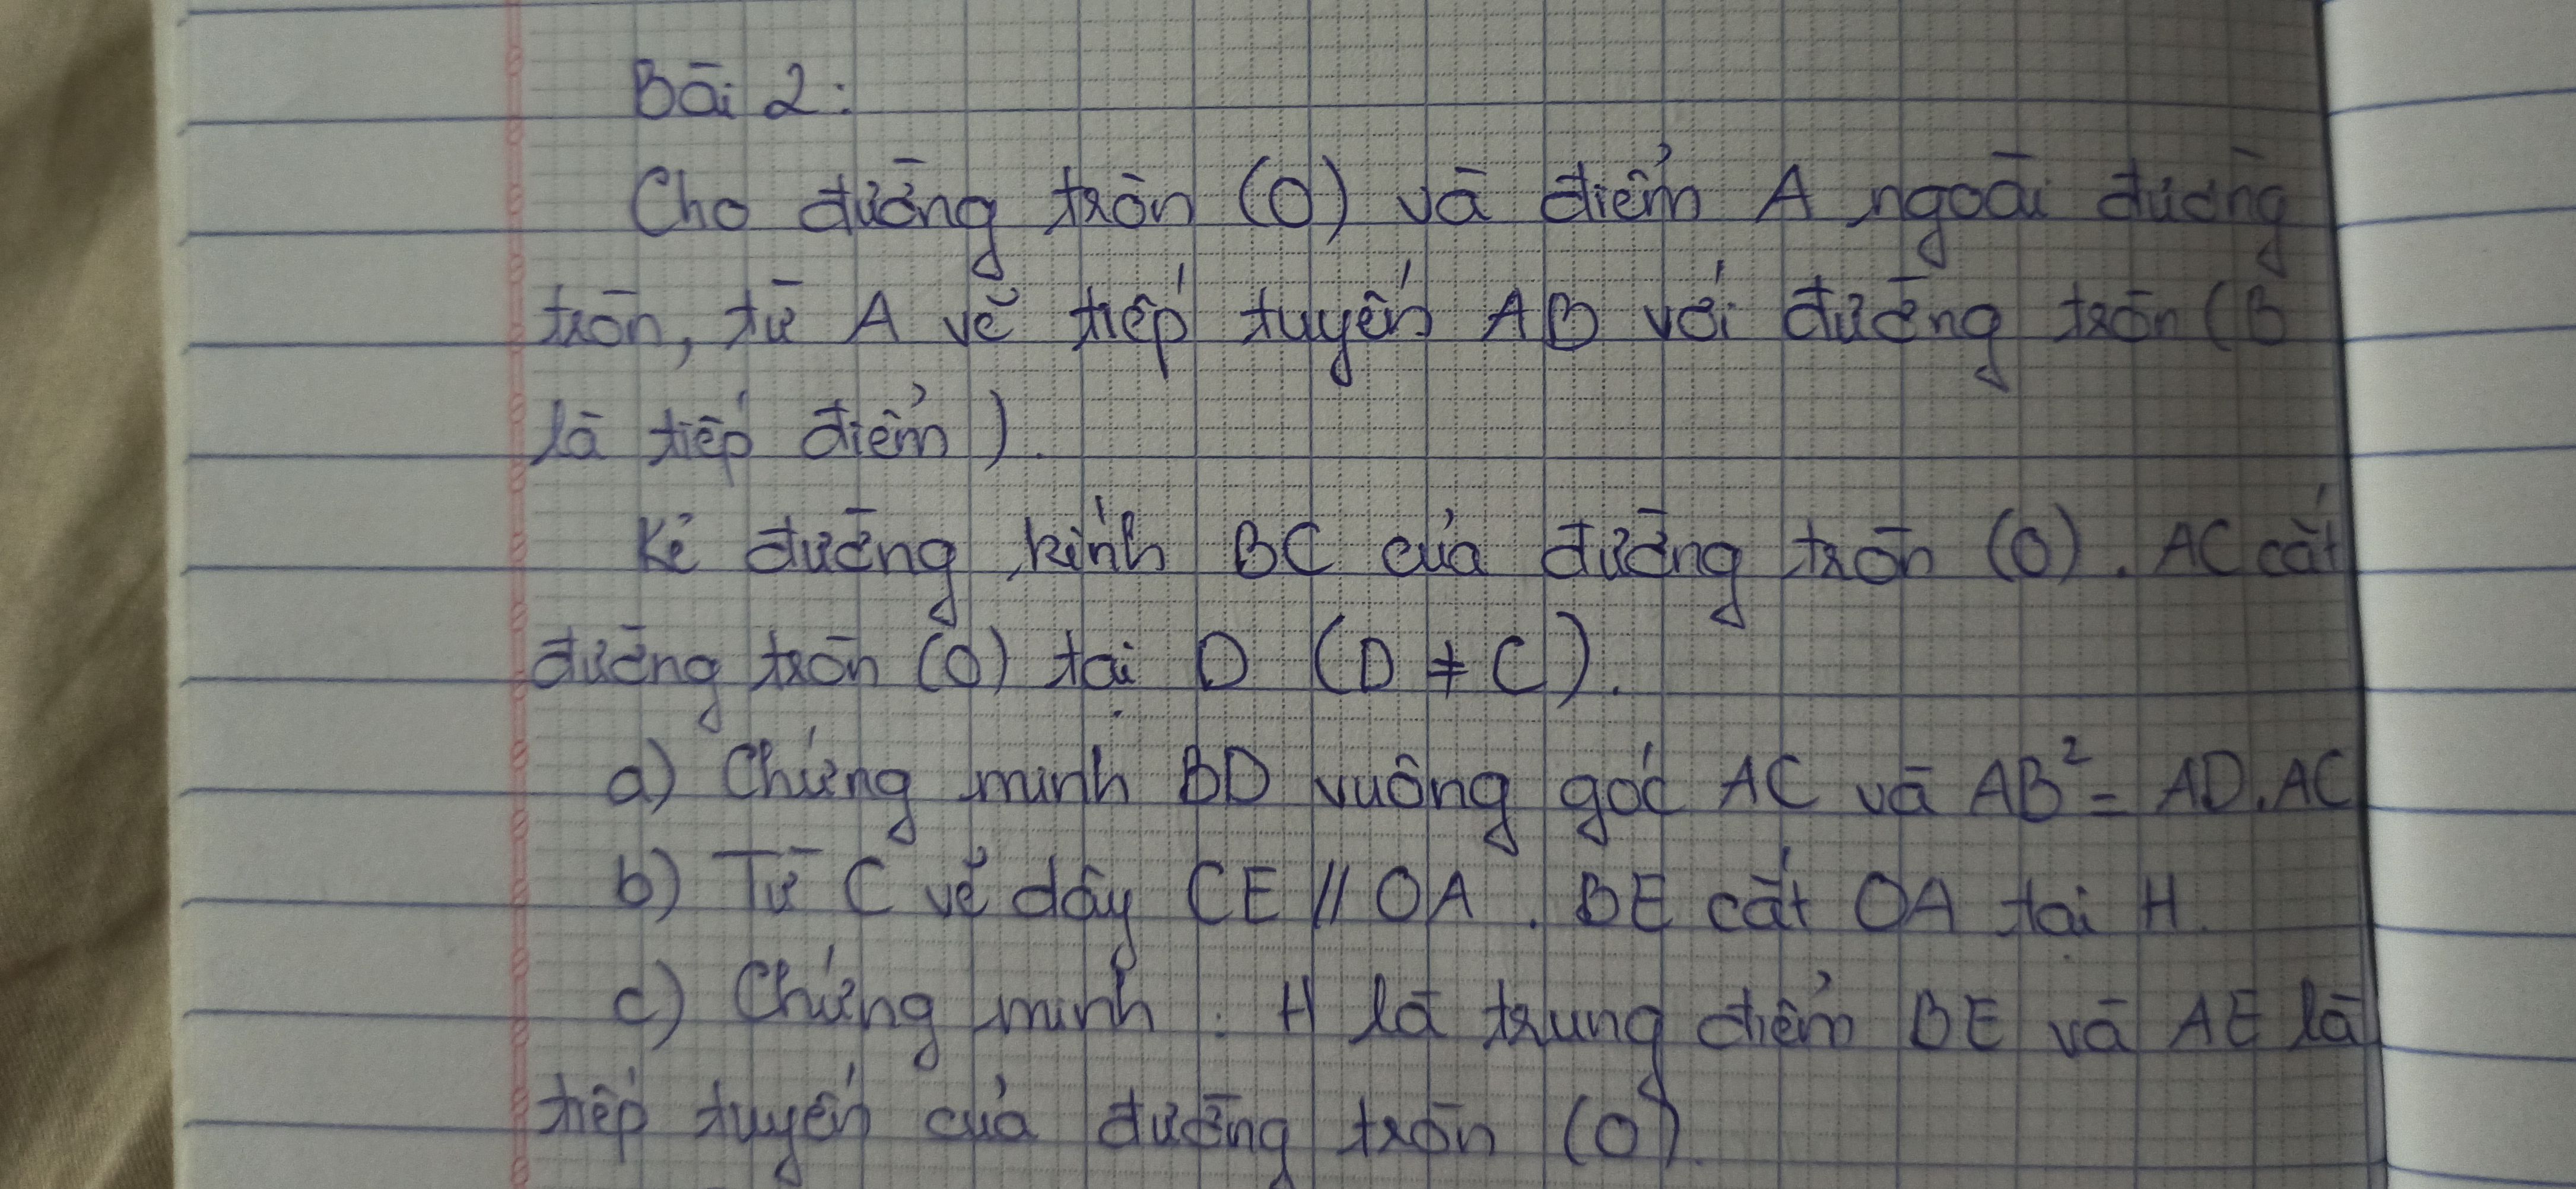 Bài 2:
Cho đường tròn (O) và điểm A ngoài đường
tròn, từ A vẽ tiếp tuyến AB với đường tròn (B
là tiếp điểm).
Kẻ đường kính BC của đường tròn (O). AC cắt
đường tròn (O) tại D (D ≠ C).
a) Chứng minh BD vuông góc AC và AB² = AD.AC
b) Từ C vẽ dây CE // OA. BE cắt OA tại H.
c) Chứng minh: H là trung điểm BE và AE là
tiếp tuyến của đường tròn (O).